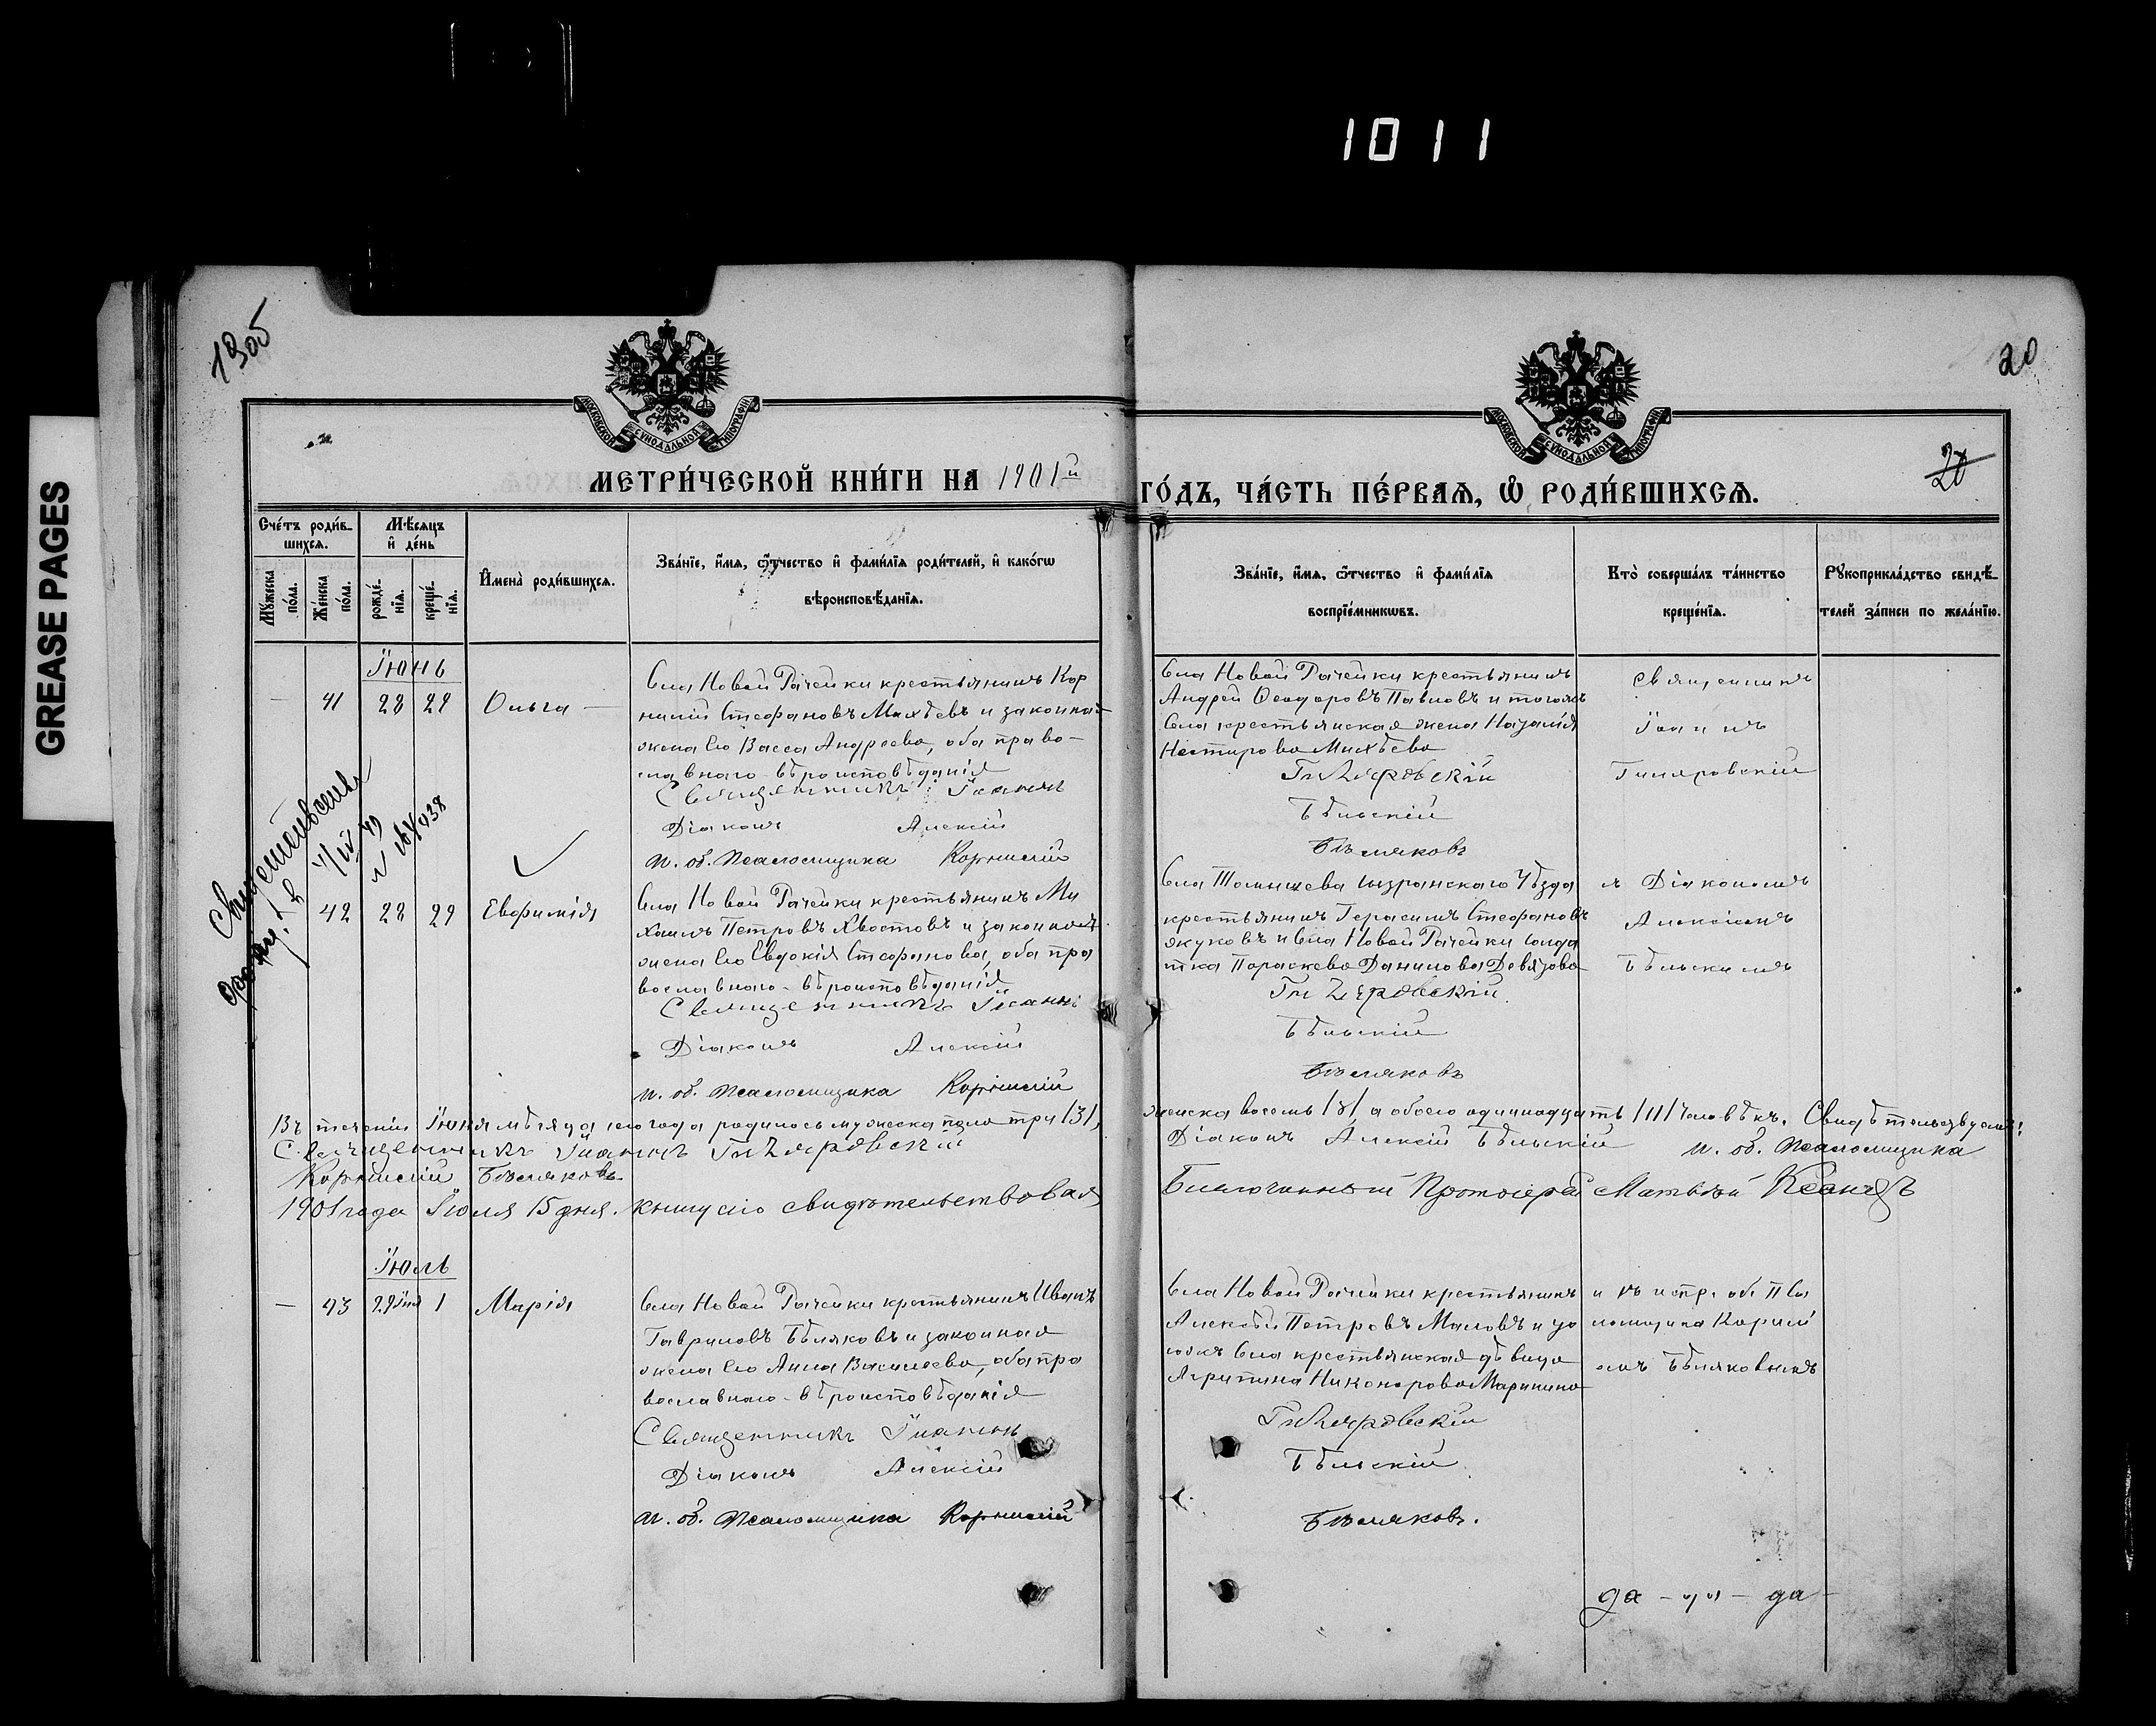 1011
GREASE PAGES
1305
20
МОСКОВСКОЙ СУНОДАЛЬНОЙ ТИПОГРАФІИ
МОСКОВСКОЙ СУНОДАЛЬНОЙ ТИПОГРАФІИ
МЕТРИ́ЧЕСКОЙ КНИ́ГИ НА 1901й
ГО́ДЪ, ЧА́СТЬ ПЕ́РВАѦ, Ѡ҆ РОДИ́ВШИХСѦ.
20
Сче́тъ роди́в-
шихсѧ.
Мѣ́сѧцъ
и҆ де́нь
Мꙋ́жеска
по́ла.
Же́нска
по́ла.
рожде́-
нїѧ.
креще́-
нїѧ.
И҆мена̀ роди́вшихсѧ.
Зва́нїе, и҆́мѧ, ѻ҆́тчество и҆ фами́лїѧ роди́телей, и҆ како́гѡ
вѣроисповѣ́данїѧ.
Зва́нїе, и҆́мѧ, ѻ҆́тчество и҆ фами́лїѧ
воспрїе́мникѡвъ.
Кто̀ соверша́лъ та́инство
креще́нїѧ.
Рꙋкоприкла́дство свидѣ́-
телей за́писи по жела́нїю.
Іюнь
— 41 28 29 Ольга —
Села Новой Рачейки крестьянинъ Кор
нилій Стефановъ Михѣевъ и законная
жена его Васса Андреева, оба право-
славнаго вѣроисповѣданія
Священникъ Іоаннъ
Діаконъ Алексій
и. об. Псаломщика Корнилій
Села Новой Рачейки крестьянинъ
Андрей Ѳеодоровъ Павловъ и тогожъ
села крестьянская жена Наталія
Нестирова Михѣева
Гиляровскій
Бѣльскій
Бѣляковъ
Священникъ
Іоаннъ
Гиляровскій
42 28 29 Евфимія
Села Новой Рачейки крестьянинъ Ми
хаилъ Петровъ Хвостовъ и законная
жена его Евдокія Стефанова, оба пра
вославнаго вѣроисповѣданія
Священникъ Іоаннъ
Діаконъ Алексій
и. об. Псаломщика Корнилій
Села Сызранскаго Уѣзда
крестьянинъ Герасимъ Стефановъ
Жуковъ и села Новой Рачейки солда
тка Параскева Данилова Девятова
Гиляровскій
Бѣльскій
Бѣляковъ
съ Діакономъ
Алексіемъ
Бѣльскимъ
Въ теченіи Іюня мѣсяца сего года родилось мужеска пола три /3/,
женска восемь /8/, а обоего одинадцать /11/ человѣкъ. Свидѣтельствуемъ:
Священникъ Іоаннъ Гиляровскій
Діаконъ Алексій Бѣльскій и. об. Псаломщика
Корнилій Бѣляковъ
1901 года Іюля 15 дня. книгу сію свидѣтельствовалъ
Благочинный Протоіерей Матвѣй
Іюль
— 43 29 Іюня 1 Марія
Села Новой Рачейки крестьянинъ Иванъ
Гавриловъ Бѣляковъ и законная
жена его Анна Васильева, оба пра
вославнаго вѣроисповѣданія
Священникъ Іоаннъ
Діаконъ Алексій
и. об. Псаломщика Корнилій
Села Новой Рачейки крестьянинъ
Алексѣй Петровъ Маловъ и
села крестьянская дѣвица
Агрипина Никонорова Маринина
Гиляровскій
Бѣльскій
Бѣляковъ.
и съ испр. об. Пса
ломщика Корнилі
емъ Бѣляковымъ